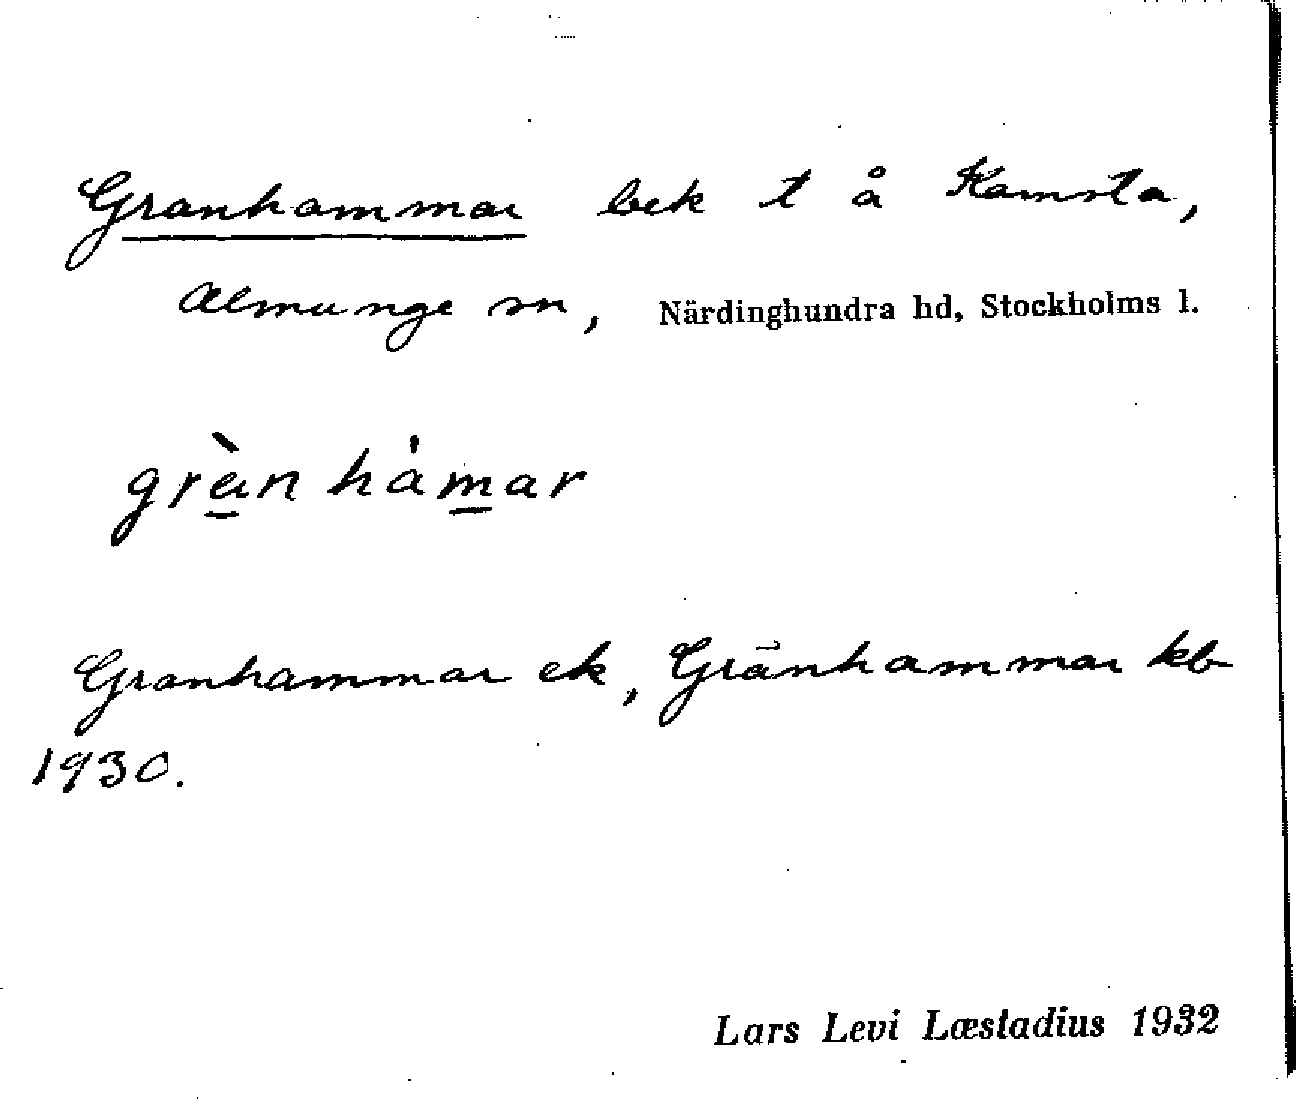 Granhammar bek t å Kamsta,
Almunge sn, Närdinghundra hd, Stockholms l.
gràn hámar
Granhammar ek, Gränhammar kb
1930.
Lars Levi Læstadius 1932